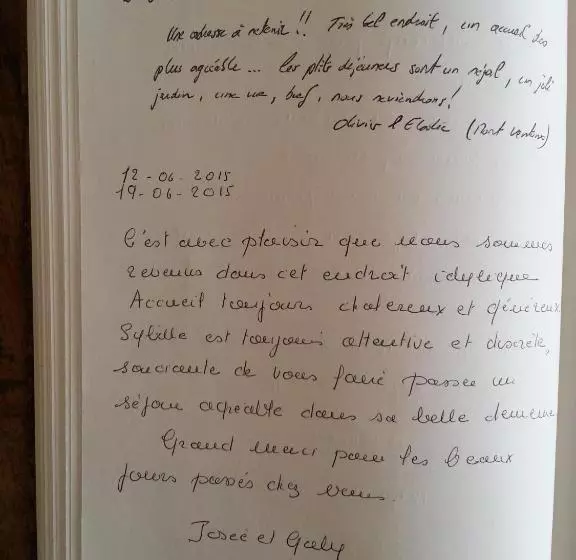 Une adresse à retenir !! Très bel endroit, un accueil des
plus agréable... les ptits déjeuners sont un régal, un joli
jardin, une vue, bref, nous reviendrons !
Olivier & Elodie (Mont Ventoux)
12-06-2015
19-06-2015
C'est avec plaisir que nous sommes
revenus dans cet endroit idylique
Accueil toujours chalereux et généreux
Sybille est toujours attentive et discrète,
souciante de vous faire passer un
séjour agréable dans sa belle demeure
Grand merci pour les beaux
jours passés chez vous.
Josée et